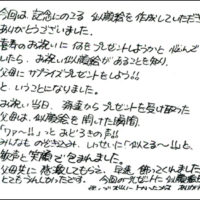 今回は 記念にのこる 似顔絵を作成していただき
ありがとうございました。
喜寿のお祝いに 何をプレゼントしようかと 悩んで
したら、お祝い似顔絵があることを知り、
父母に サプライズプレゼントをしよう!!
と いうことになりました。
お祝い当日、孫達からプレゼントを受け取った
父母は、似顔絵を開けた瞬間、
「ワァ〜!!」っと おどろきの声!!
みんなも のぞきこみ、いっせいに「似てる〜!!」と、
歓声と笑顔で包まれました。
父母共に 感激してもらえ、早速、飾ってくれました
とてもうれしかったです。 今回のプレゼントに